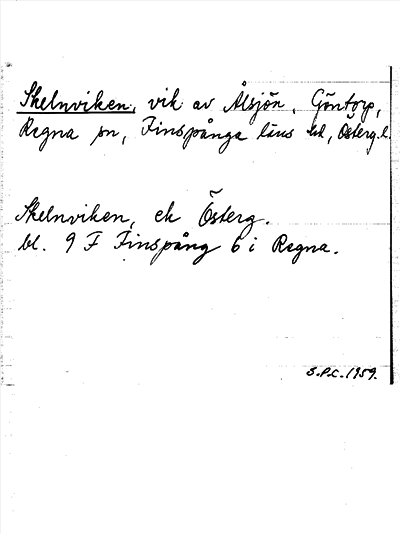 Skelnviken, vik av Ålsjön, Göntorp,
Regna sn, Finspånga läns hd, Österg.l.
Skelnviken, ek Österg.
bl. 9 F Finspång 6 i Regna.
S.P.C. 1959.